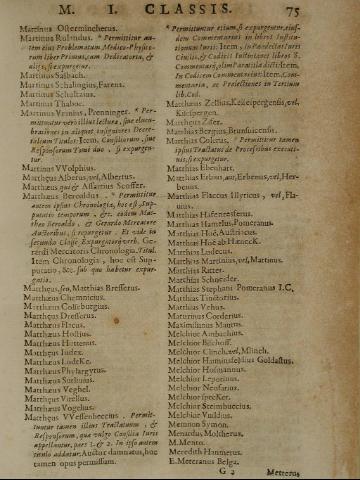 M. I. CLASSIS. 75
Martinus Ostermincherus.
Martinus Rulandus. * Permittitur au-
tem eius Problematum Medico-Physico-
rum liber Primus, cum Dedicatoria, &
alijs, si expurgetur.
Martinus Salbach.
Martinus Schalingius, Farens.
Martinus Scholtzius.
Martinus Thaboc.
Martinus Vrsinus, Prenninger. * Per-
mittitur
Decre-
talium Item, Consiliorum, siue
Responsorum Tomi duo, si expurgen-
tur.
Martinus VVolphius.
Matthæus Alberus, vel, Albertus.
Matthæus qui & Assartius Scoffer.
Matthæus Beroaldus. * Permittitur
autem ipsius Chronologia, hoc est, Sup-
putatio temporum, &c. eodem Mat-
theo Beroaldo, & Gerardo Mercatore
Auctoribus, si expurgetur. Et vide in
secunda Classe Expurgatoria verb. Ge-
rardi Mercatoris Chronologia. Vital.
Item Chronologia, hoc est Sup-
putatio, &c. sub qua habetur expur-
gatio.
Mattheus, seu, Matthias Bressetus.
Matthæus Chemnicius.
Matthæus Colleburgius.
Matthæus Dresserus.
Matthæus Hacus.
Matthæus Hostius.
Matthæus Hottenus.
Mattheus Iudex.
Matthæus LudeKe.
Matthæus Phylargytus.
Matthæus Sutluuius.
Matthæus Veghel.
Matthæus Virellus.
Matthæus Vogelius.
Mattheus VVessenbecius. Permit-
tuntur tamen illius Tractatuum, &
Responsorum, quæ vulgo Consilia Iuris
appellantur, pars 1. & 2. In ipso autem
titulo addatur: Auctor damnatus, hoc
tamen opus permissum.
* Permittuntur etiam, si expurgentur, eius-
dem Commentarij in libros Institu-
tionum Iuris: Item, in Pandectas Iuris
Ciuilis, & Codicis Iustinianei libros 8.
Commentarij, aliàs Paratitla dicti: Item,
In Codicem Commentarius: Item, Com-
mentaria, ac Prælectiones in Tertium
lib. Cod.
Matthæus Zellius, Keiserpergensis, vel,
Keisersperg.
Matthæus Zifer.
Matthias Bergius, Brunsuicensis.
Matthias Colerus. * Permittitur tamen
ipsius Tractatus de Processibus executi-
uis, si expurgetur.
Matthias Ebenhart.
Matthias Erbius, aut, Erbenius, vel, Her-
benius.
Matthias Flaccus Illyricus, vel, Fla-
cius.
Matthias Hafenrefferus.
Matthias Hamelius, Pomeranus.
Matthias Hoè, Austriacus.
Matthias Hoè ab HœneK.
Matthias Ludecus.
Matthias Martinius, vel, Martinus.
Matthias Ritter.
Matthias Schneider.
Matthias Stephani Pomeranus I.C.
Matthias Tinctorius.
Matthias Vehus.
Maturinus Corderius.
Maximilianus Mauttus.
Melchior Ambachius.
Melchior Bischoff.
Melchior Clinch, vel, Mlinch.
Melchior Haiminsfeldius Goldastus.
Melchior Hofmannus.
Melchior Leporinus.
Melchior Neofarius.
Melchior specKer.
Melchior Steimbeccius.
Melchior Vuildius.
Memnon Symon.
Menardus, Moltherus.
M. Mento.
Meredith Hanmerus.
E. Meteranus Belga.
G 2 Meterus